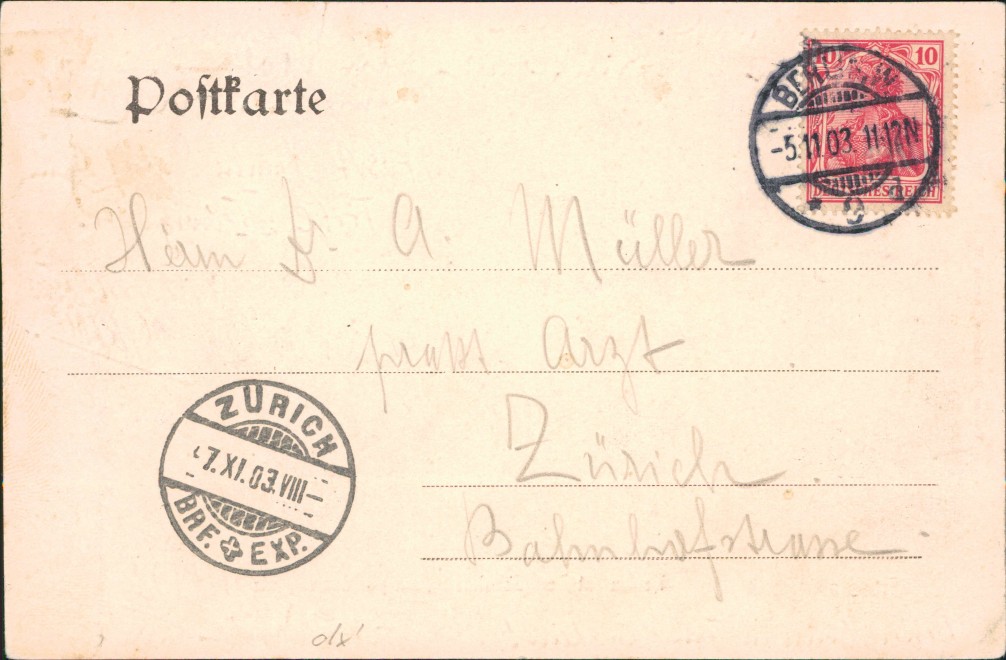 Postkarte
10 10
BERLIN W
-5.11.03. 11-12N
* 9
DEUTSCHES REICH
Herrn Dr A. Müller
prakt Arzt
Zürich
Bahnhofstrasse
ZÜRICH
7.XI.03.VIII—
BRF. EXP.